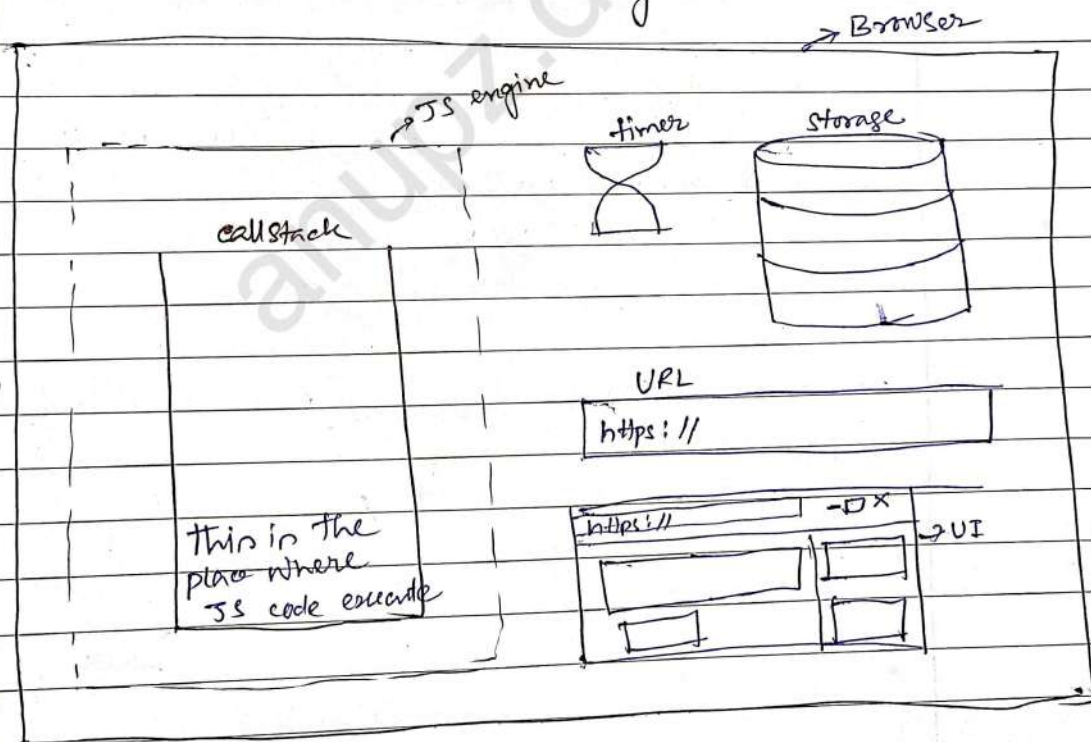 Browser
JS engine
timer
storage
callstack
URL
https://
https://
- □ X
UI
this is the
place where
JS code execute
anupz.d